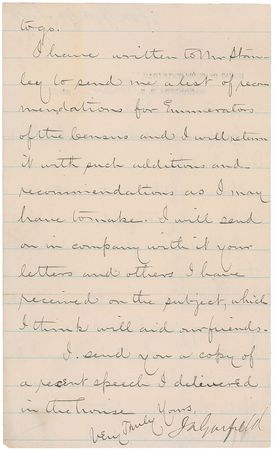 to go.
I have written to Mr Stan-
ley to send me a list of recom
mendations for Enumerators
of the Census and I will return
it with such additions and
recommendations as I may
have to make. I will send
on in company with it your
letters and others I have
received on the subject, which
I think will aid our friends.
I send you a copy of
a recent speech I delivered
in the House
Very Truly Yours,
J A Garfield